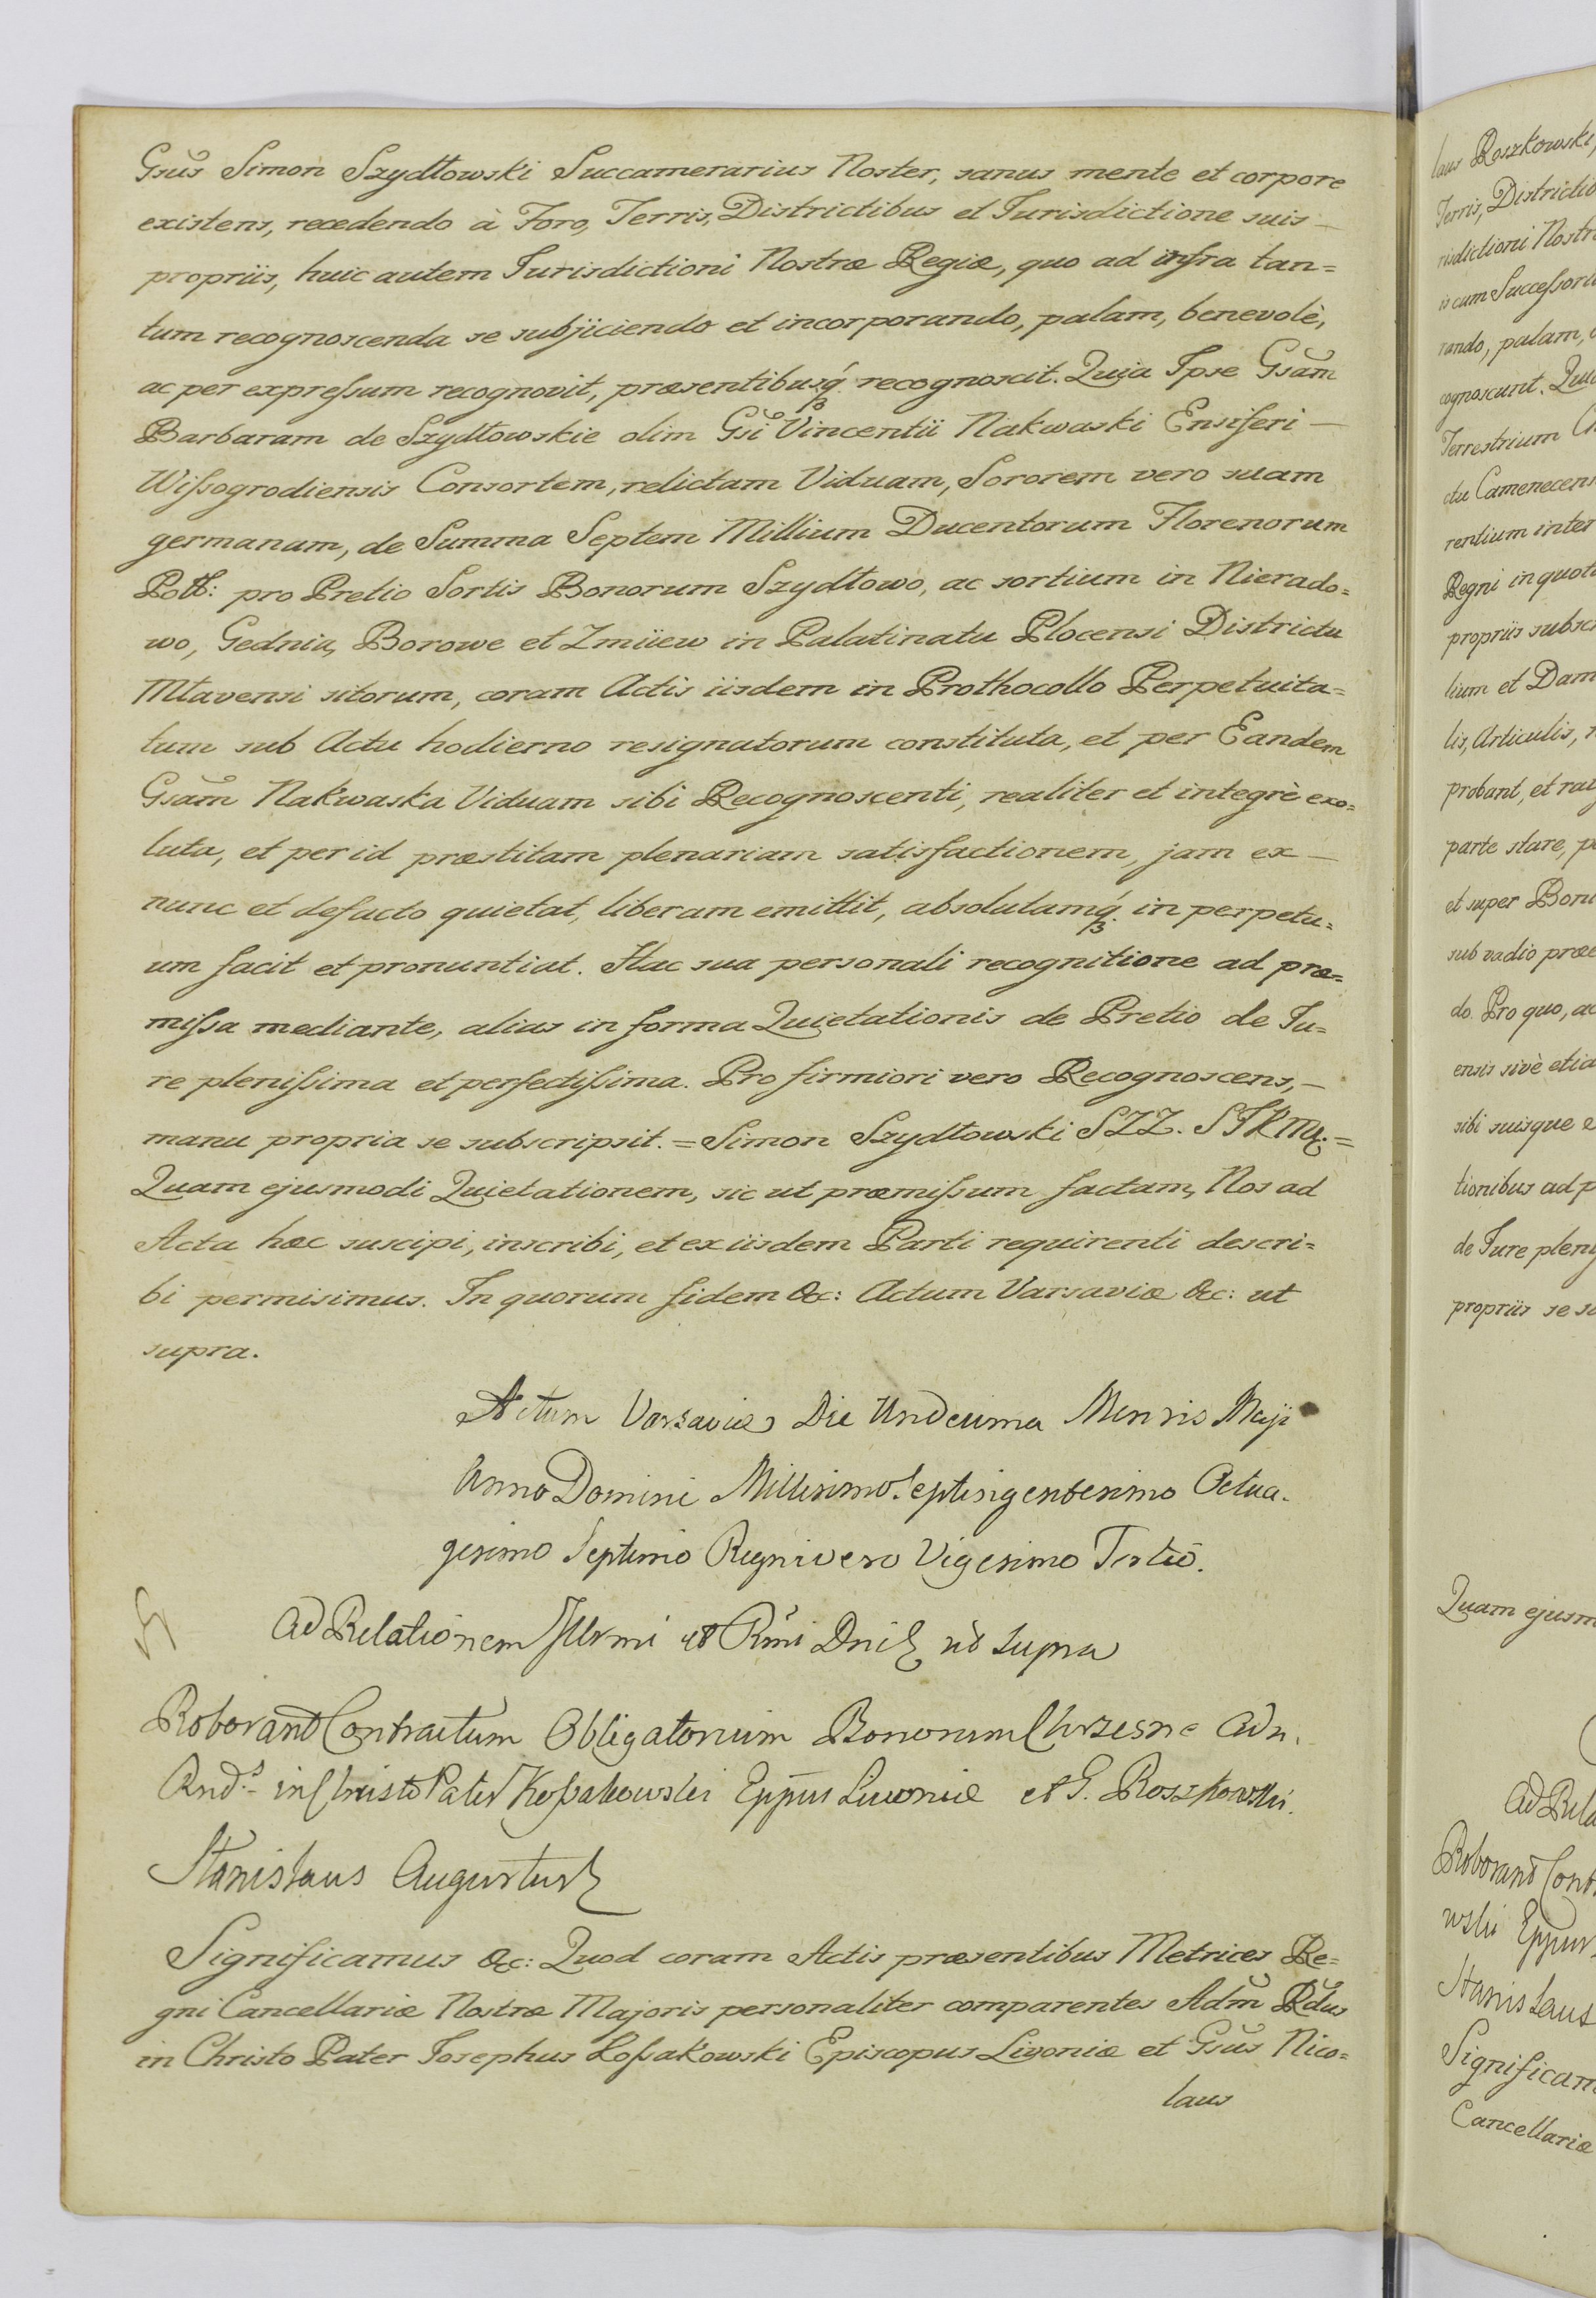 Gsus Simon Szydłowski Succamerarius Noster, sanus mente et corpore
existens, recedendo à Foro, Terris, Districtibus et Jurisdictione suis —
propriis, huic autem Jurisdictioni Nostræ Regiæ, quo ad infra tan=
tum recognoscenda se subjiciendo et incorporando, palam, benevolè,
ac per expreſsum recognovit, præsentibusq́ recognoscit. Quia Ipse Gsam
Barbaram de Szydłowskie olim Gsi Vincentii Nakwaski Ensiferi —
Wiſsogrodiensis Consortem, relictam Viduam, Sororem vero suam
germanam, de Summa Septem Millium Ducentorum Florenorum
Poll: pro Pretio Sortis Bonorum Szydłowo, ac sortium in Nierado=
wo, Gednia, Borowe et Zmiiew in Palatinatu Plocensi Districtu
Mlavensi sitorum, coram Actis iisdem in Prothocollo Perpetuita=
tum sub Actu hodierno resignatorum constituta, et per Eandem
Gsam Nakwaska Viduam sibi Recognoscenti, realiter et integrè exo=
luta, et per id præstitam plenariam satisfactionem, jam ex —
nunc et defacto quietat, liberam emittit, absolutamq́. in perpetu=
um facit et pronuntiat. Hac sua personali recognitione ad præ=
miſsa mediante, alias in forma Quietationis de Pretio de Ju=
re pleniſsima et perfectiſsima. Pro firmiori vero Recognoscens, —
manu propria se subscripsit. = Simon Szydłowski SZZ. SJKMq. =
Quam ejusmodi Quietationem, sic ut præmiſsum factam, Nos ad
Acta hæc suscipi, inscribi, et ex iisdem Parti requirenti descri=
bi permisimus. In quorum fidem &c: Actum Varsaviæ &c: ut
supra.
Actum Varsaviæ Die Undecima Mensis Maji
Anno Domini Millesimo Septisigentesimo Octua.
gesimo Septimo Regni vero Vigesimo Tertio.
Ad Relationem Illrmi et Rmi Dni ut supra
Roborant Contractum Obligatorium Bonorum Chrzesne Adm.
Rnd.s in Christo Pater Koſsakowski Eppus Livoniæ et G. Roszkowski.
Stanislaus Augustus
Significamus &c: Quod coram Actis præsentibus Metrices Re=
gni Cancellariæ Nostræ Majoris personaliter comparentes Adm Rdus
in Christo Pater Josephus Koſsakowski Episcopus Livoniæ et Gsus Nico=
laus
laus Roszkowski,
Terris, Districtib
risdictioni Nostr
is cum Succeſsori
rando, palam,
cognoscunt. Qui
Terrestrium
ctu Camenecens
rentium inter
Regni in quot
propriis subsc
lium et Dam
lis, Articulis,
probant, et rat
parte stare, p
et super Bon
sub vadio præ
do. Pro quo, ac
ensis sivè etia
sibi suisque
tionibus ad p
de Jure pleni
propriis se s
Quam ejusm
Ad Rela
Roborant Cont
wski Eppus
Stanislaus
Significam
Cancellariæ